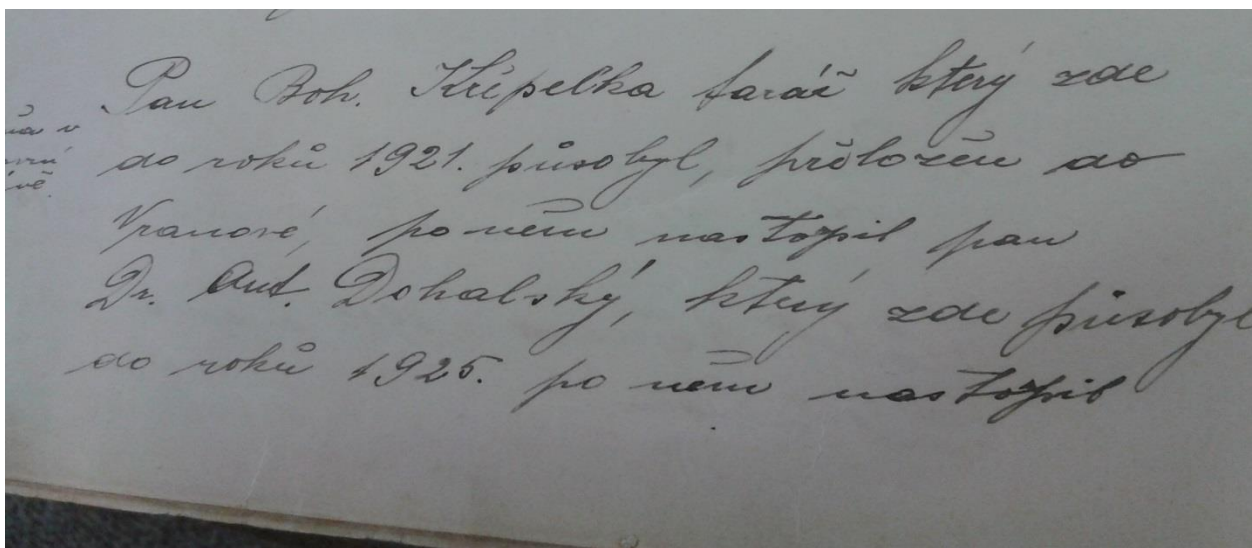 Pan Boh. Křepelka farář který zde
do roků 1921. působyl, přeložen do
Vranové, po něm nastopil pan
Dr. Ant. Dohalský, který zde působyl
do roků 1925. po něm nastopil